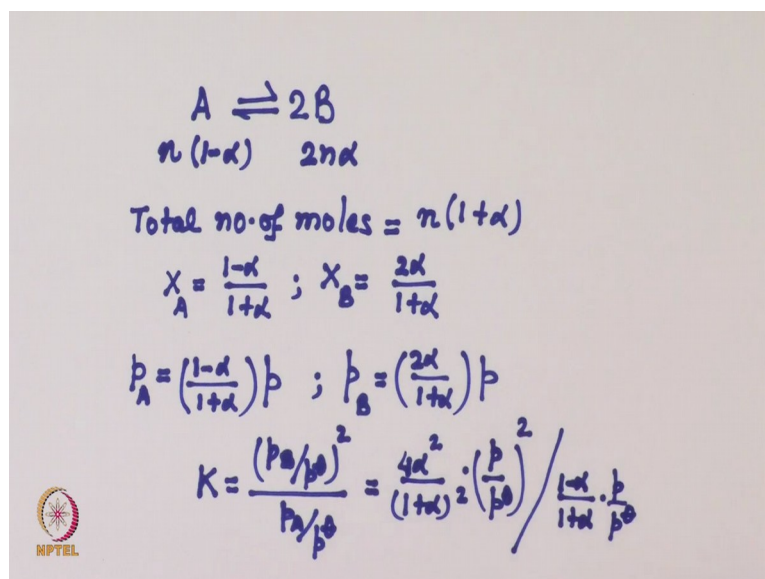 A ⇌ 2B
n(1-α) 2nα
Total no. of moles = n(1+α)
x_A = (1-α)/(1+α) ; x_B = 2α/(1+α)
p_A = ((1-α)/(1+α)) p ; p_B = (2α/(1+α)) p
K = (p_B/p^⦵)^2 / (p_A/p^⦵) = 4α^2/(1+α)^2 · (p/p^⦵)^2 / (1-α)/(1+α) · p/p^⦵
NPTEL